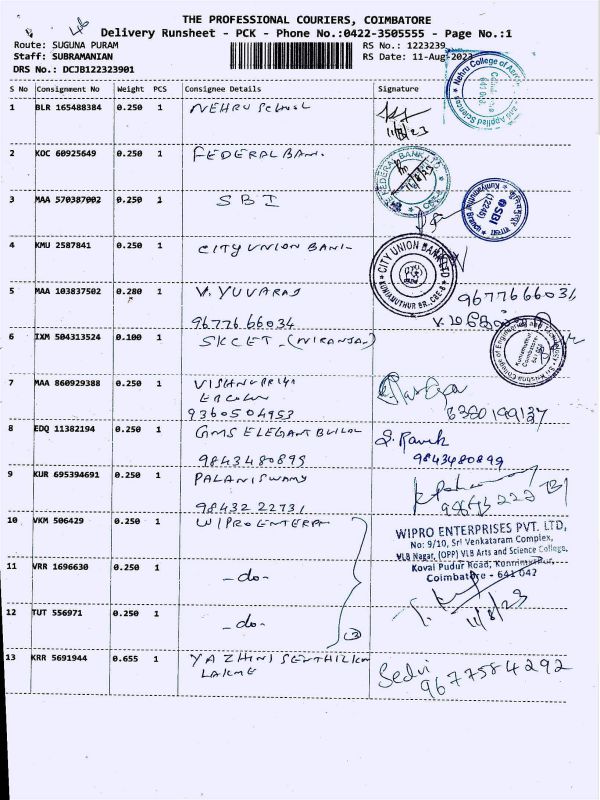 THE PROFESSIONAL COURIERS, COIMBATORE
Delivery Runsheet - PCK - Phone No.:0422-3505555 - Page No.:1
Route: SUGUNA PURAM RS No.: 1223239
Staff: SUBRAMANIAN RS Date: 11-Aug-2023
DRS No.: DCJB122323901
S No Consignment No Weight PCS Consignee Details Signature
1 BLR 165488384 0.250 1 NEHRU SCHOOL
11/8/23
2 KOC 60925649 0.250 1 FEDERAL BAN.
3 MAA 570387002 0.250 1 SBI
4 KMU 2587841 0.250 1 CITY UNION BANK
CITY UNION BANK LTD
KUNIAMUTHUR BR., CBE-8
5 MAA 103837502 0.280 1 V. YUVARAJ 9677666031
9677666034
6 IXM 504313524 0.100 1 SKCET - (NIRANJAN)
7 MAA 860929388 0.250 1 VISHNUPRIYA
9360504953 6380199137
8 EDQ 11382194 0.250 1 GMS ELEGANT BUILD S. Ravik
9843480899 9843480899
9 KUR 695394691 0.250 1 PALANISWAMY
98432 22731
10 VKM 506429 0.250 1 WIPRO ENTERPR
WIPRO ENTERPRISES PVT. LTD,
No: 9/10, Sri Venkataram Complex,
VLB Nagar, (OPP) VLB Arts and Science College,
Koval Pudur Road, Kuniamuthur,
Coimbatore - 641 042
11 VRR 1696630 0.250 1 -do-
12 TUT 556971 0.250 1 -do-
(3) 11/8/23
13 KRR 5691944 0.655 1 YAZHINI SENTHILKM Selvi
LAKME 9677584292